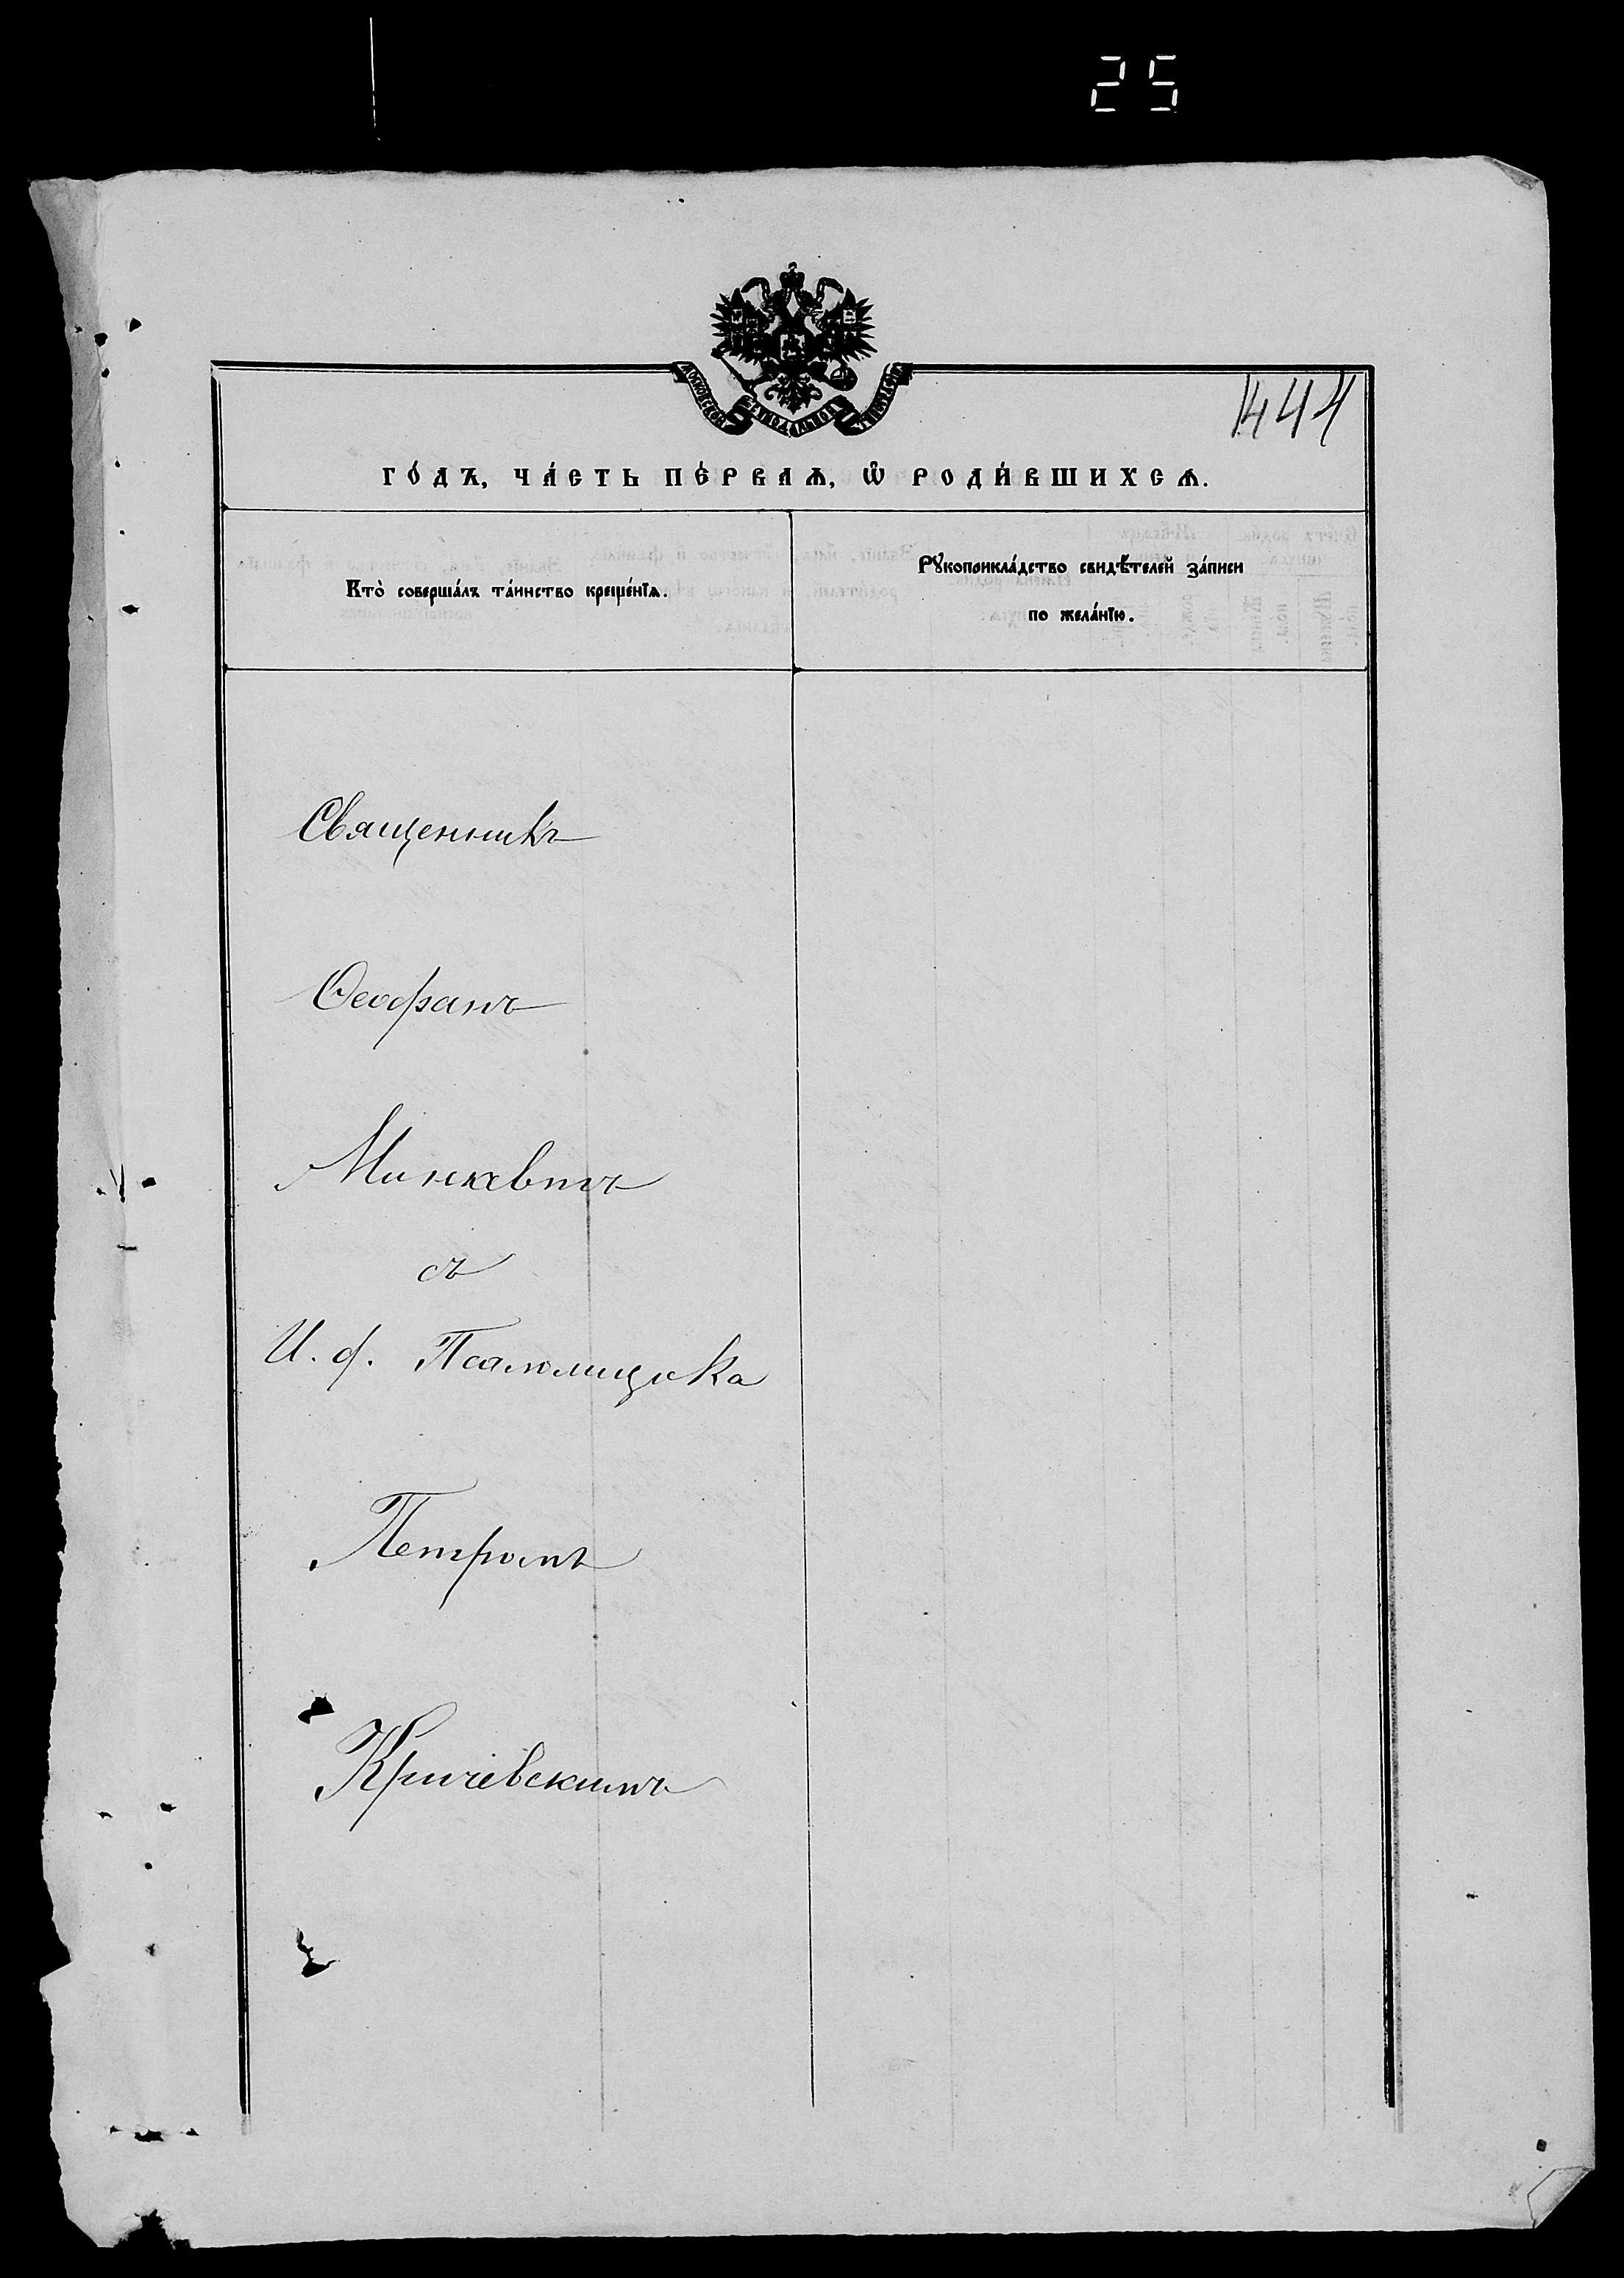 25
МОСКОВСКОЙ СѴНОДАЛЬНОЙ
444
ГО́ДЪ, ЧА́СТЬ ПЕ́РВАѦ, Ѿ РОДИ́ВШИХСѦ.
Кто̀ соверша́лъ та́инство креще́нїѧ.
Рꙋкоприкла́дство свидѣ́телей за́писи
по жела́нїю.
Священникъ
Ѳеофанъ
Минкевичъ
съ
И. ф. Псаломщика
Петромъ
Кричевскимъ